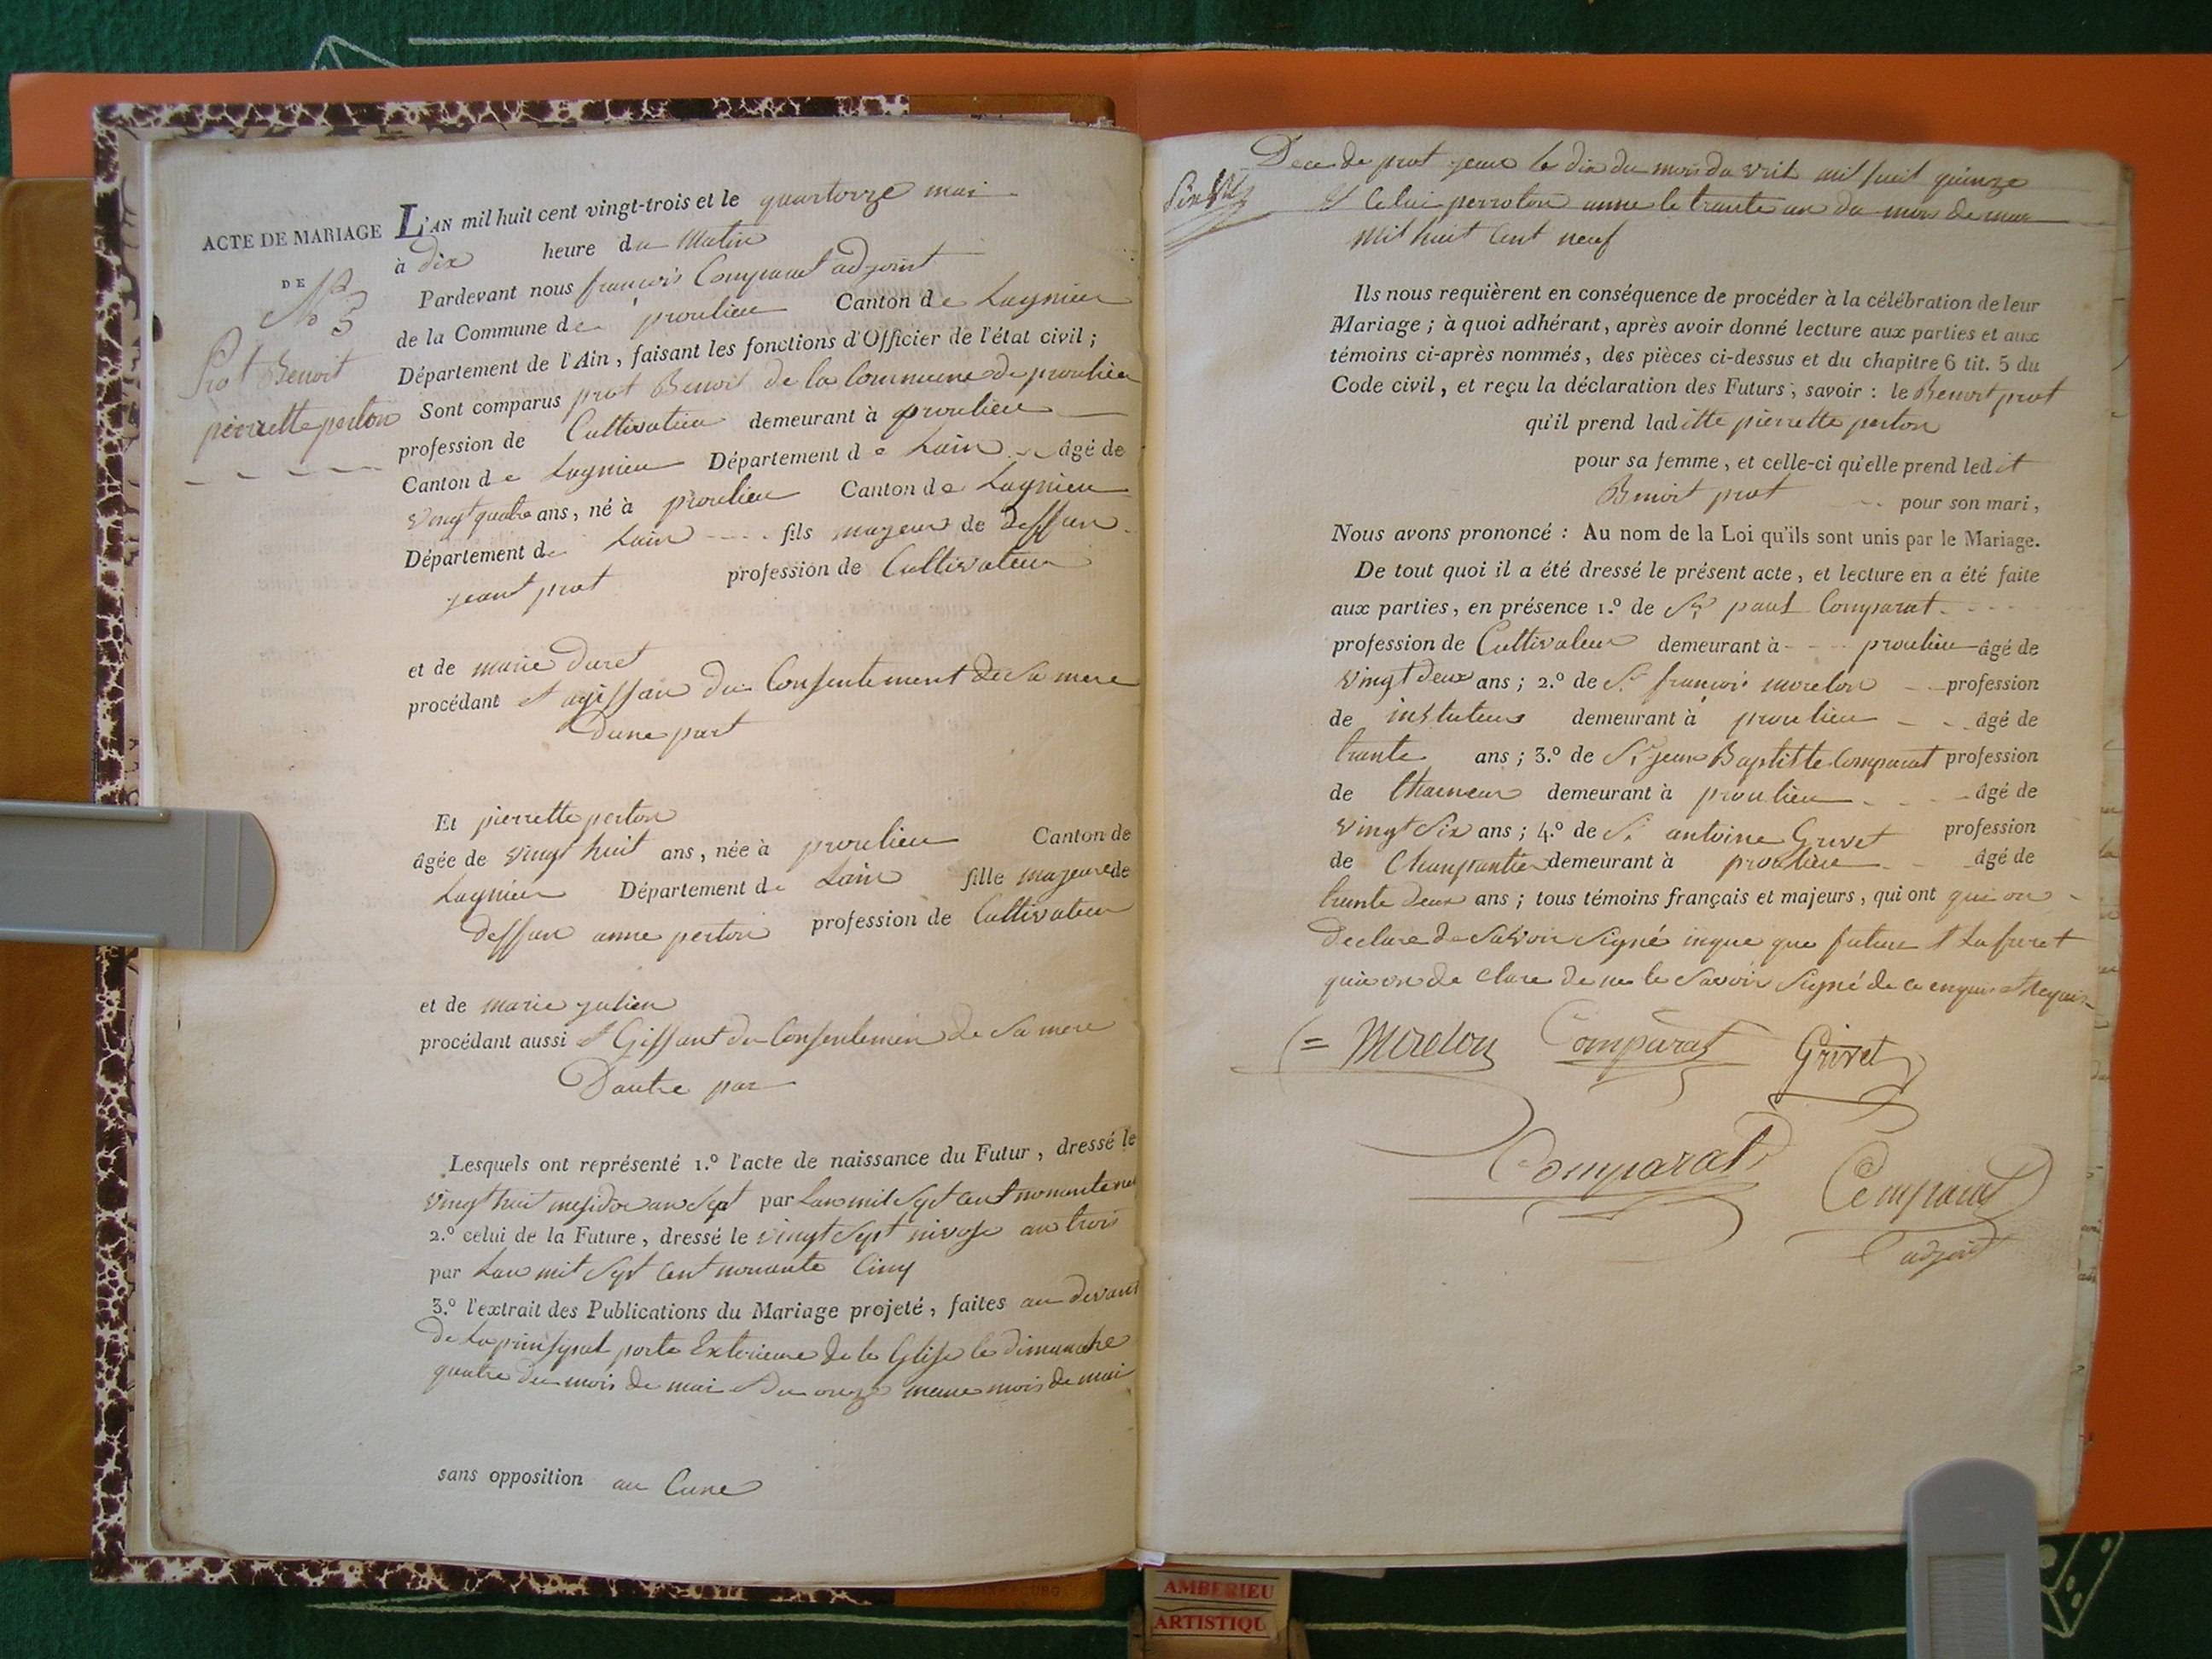 ACTE DE MARIAGE
DE
N° 3
Prot Benoit
pierrette perton
L'AN mil huit cent vingt-trois et le quartorze mai
à dix heure du Matin
Pardevant nous francois Comparat adjoint
de la Commune de proulieu Canton de Lagnieu
Département de l'Ain, faisant les fonctions d'Officier de l'état civil ;
Sont comparus prot Benoit de la Commune de proulieu
profession de Cultivateur demeurant à proulieu
Canton de Lagnieu Département de Lain âgé de
vingt quatre ans, né à proulieu Canton de Lagnieu
Département de Lain fils majeur de deffun
jeant prot profession de Cultivateur
et de marie duret
procédant et agissan du Consentement de Sa mere
Dune part
Et pierrette perton
âgée de vingt huit ans, née à proulieu Canton de
Lagnieu Département de Lain fille majeure de
deffun anne perton profession de Cultivateur
et de marie julien
procédant aussi et Gissant du Consentemen de Sa mere
Dautre par
Lesquels ont représenté 1.º l'acte de naissance du Futur, dressé le
vingt huit mesidor an Sept par Lan mil Sept cent nonante neuf
2.º celui de la Future, dressé le vingt Sept nivose an trois
par Lan mil Sept Cent nonante Cinq
3.º l'extrait des Publications du Mariage projeté, faites au devant
de La prinsypal porte Exterieure de le Glise le dimanche
quatre du mois de mai et Du onze meme mois de mai
sans opposition au Cune
Dece de prot jean le dix du mois da vril mil huit quinze
Et Celui perroton anne le trante un du mois de mars
Mil huit Cent neuf
Ils nous requièrent en conséquence de procéder à la célébration de leur
Mariage ; à quoi adhérant, après avoir donné lecture aux parties et aux
témoins ci-après nommés, des pièces ci-dessus et du chapitre 6 tit. 5 du
Code civil, et reçu la déclaration des Futurs, savoir : le Benoit prot
qu'il prend laditte pierrette perton
pour sa femme, et celle-ci qu'elle prend ledit
Benoit prot pour son mari,
Nous avons prononcé : Au nom de la Loi qu'ils sont unis par le Mariage.
De tout quoi il a été dressé le présent acte, et lecture en a été faite
aux parties, en présence 1.º de Sr paul Comparat
profession de Cultivateur demeurant à proulieu âgé de
vingt deux ans ; 2.º de Sr francois morelon profession
de instuteur demeurant à proulieu âgé de
trante ans ; 3.º de Sr jean Baptiste Comparat profession
de demeurant à proulieu âgé de
vingt Six ans ; 4.º de Sr antoine Grivet profession
de Charpantier demeurant à proulieu âgé de
trante deux ans ; tous témoins français et majeurs, qui ont qui on
Declare de Savoir Signé que future
qui on de clare de ne le Savoir Signé de ce enquis
Morelon Comparat Grivet
Comparat Comparat
adjoint
AMBERIEU
ARTISTIQU